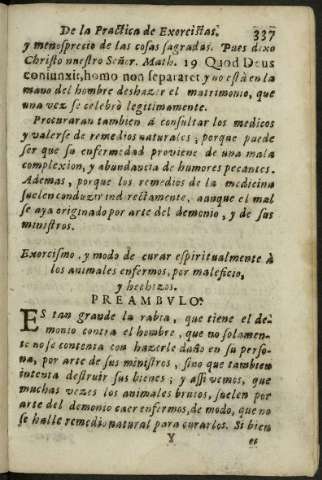 De la Practica de Exorcistas. 337
y menosprecio de las cosas sagradas. Pues dixo
Christo nuestro Señor. Math. 19 Quod Deus
coniunxit, homo non separaret y no està en la
mano del hombre deshazer el matrimonio, que
una vez se celebrò legitimamente.
Procuraran tambien à consultar los medicos
y valerse de remedios naturales; porque puede
ser que su enfermedad proviene de una mala
complexion, y abundancia de humores pecantes.
Ademas, porque los remedios de la medicina
suelen conduzir indirectamente, aunque el mal
se aya originado por arte del demonio, y de sus
ministros.
Exorcismo. y modo de curar espiritualmente à
los animales enfermos, por maleficio,
y hechizos.
PREAMBVLO.
ES tan grande la rabia, que tiene el de-
monio contra el hombre, que no solamen-
te no se contenta con hazerle daño en su perso-
na, por arte de sus ministros, sino que tambien
intenta destruir sus bienes; y assi vemos, que
muchas vezes los animales brutos, suelen por
arte del demonio caer enfermos, de modo, que no
se halle remedio natural para curarlos. Si bien
Y es